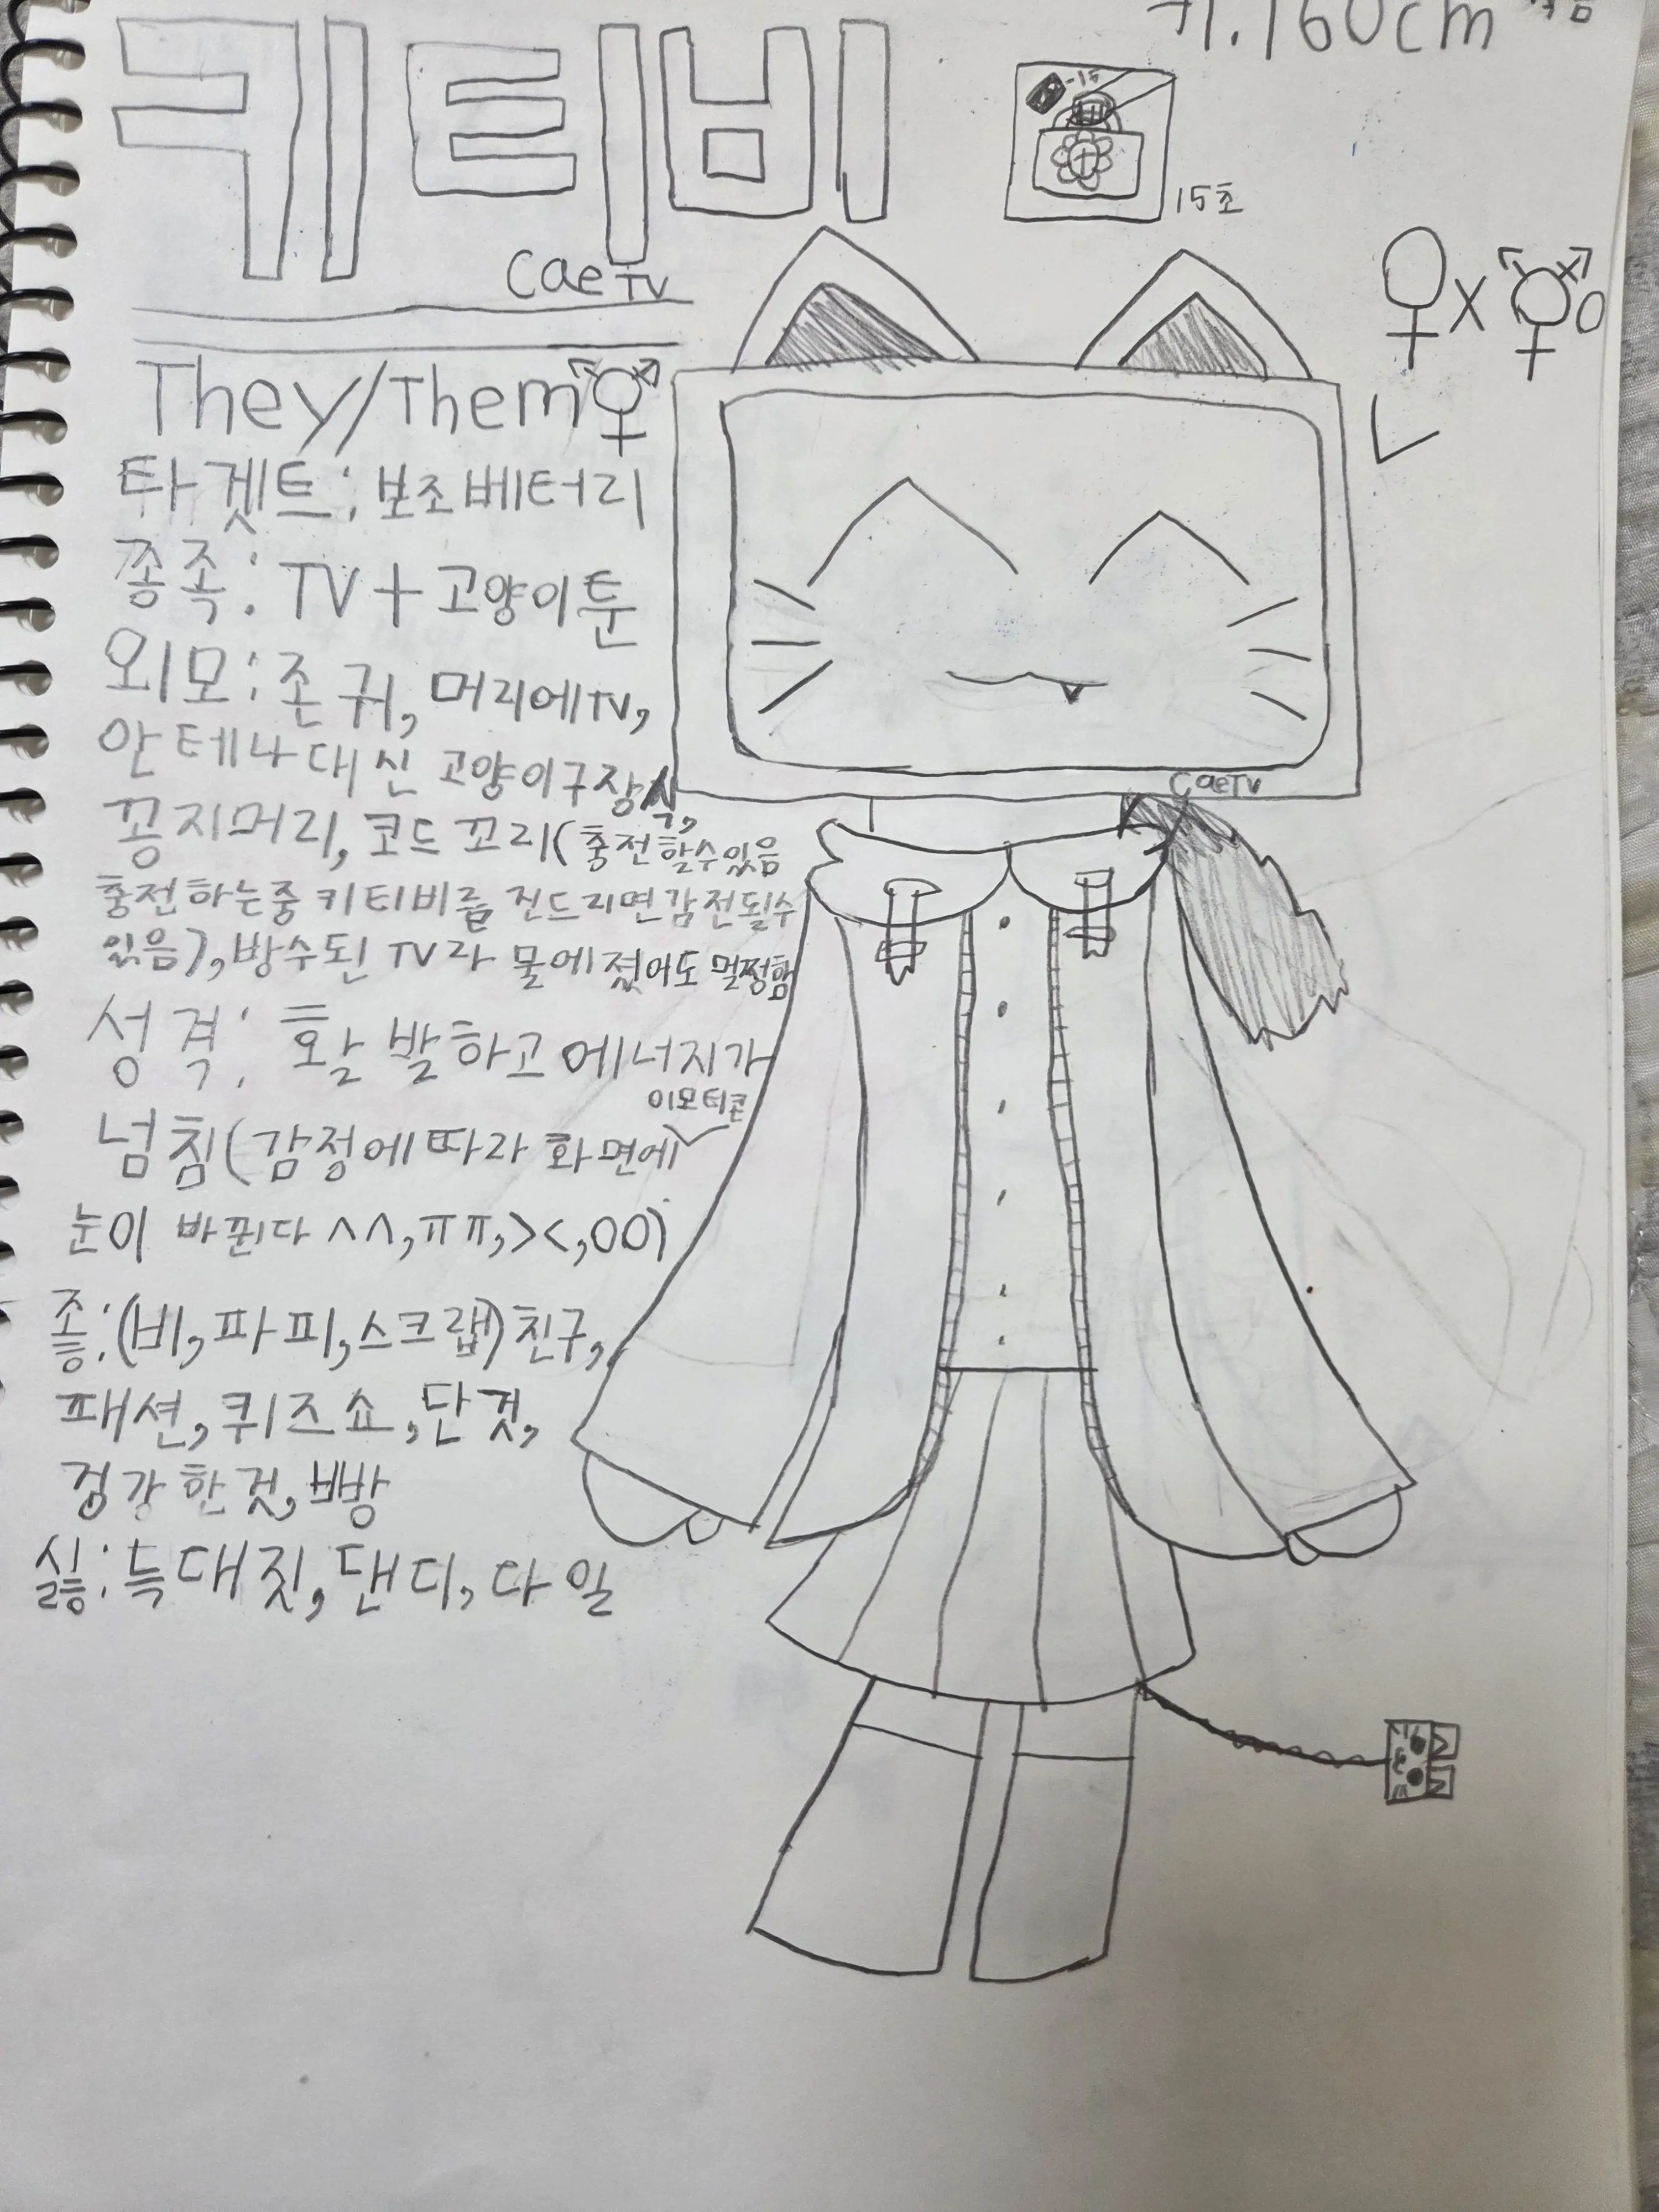 키티비
키.160cm
-15
15초
CaeTV
They/Them
타겟트: 보조베터리
종족: TV+고양이툰
외모: 존귀, 머리에TV,
안테나대신 고양이구장식,
꽁지머리, 코드꼬리(충전할수있음
충전하는중 키티비를 건드리면감전될수
있음), 방수된 TV라 물에젔어도멀쩡함
성격: 활발하고 에너지가
넘침(감정에따라 화면에 이모티콘
눈이 바뀐다 ^^,ㅠㅠ,><,OO)
좋:(비,파피,스크랩)친구,
패션,퀴즈쇼,단것,
건강한것,빵
싫:늑대짓,댄디,다일
X O
CaeTV